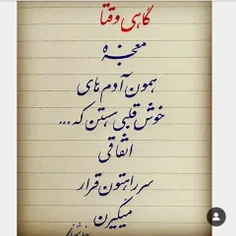 گاهی وقتا
معجزه
همون آدم های
خوش قلبی هستن که...
اتفاقی
سر راهتون قرار
میگیرن